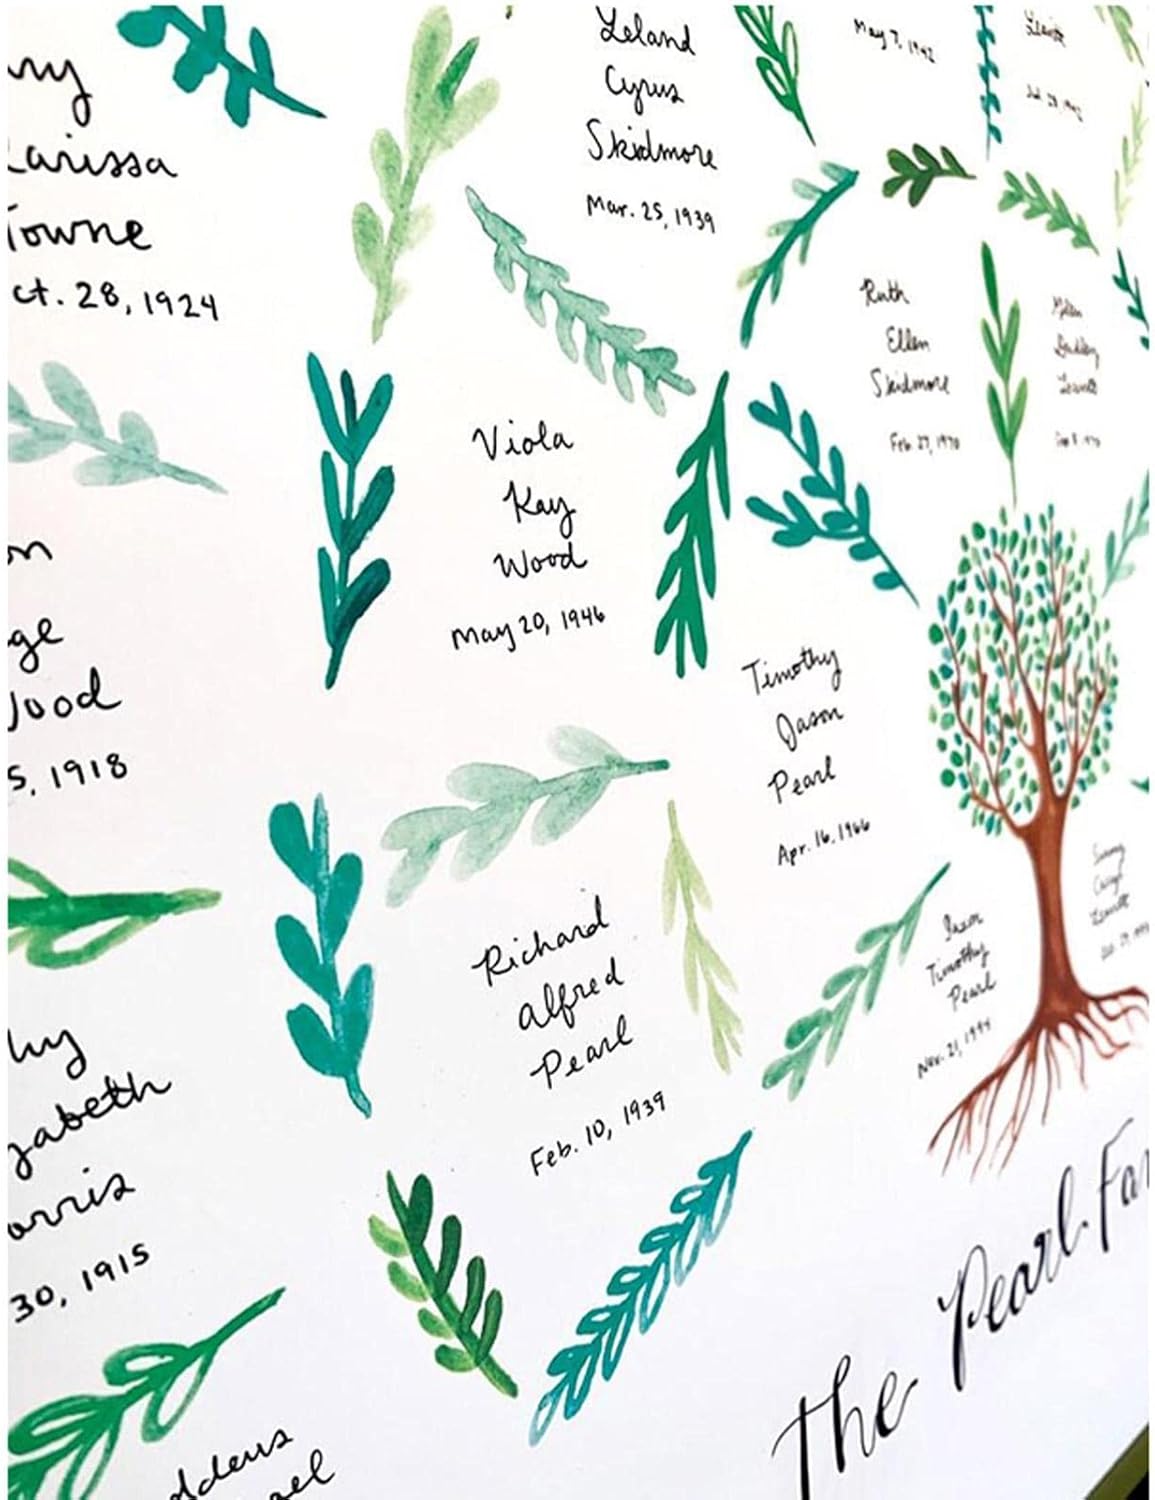 Larissa
Towne
ct. 28, 1924
Leland
Cyrus
Skidmore
Mar. 25, 1939
May 7, 1942
Ruth
Ellen
Skidmore
Feb. 27, 1970
Viola
Kay
Wood
May 20, 1946
Wood
5, 1918
Timothy
Jason
Pearl
Apr. 16, 1966
Richard
Alfred
Pearl
Feb. 10, 1939
Timothy
Pearl
Nov. 21, 1994
zabeth
orris
30, 1915
The Pearl Fa